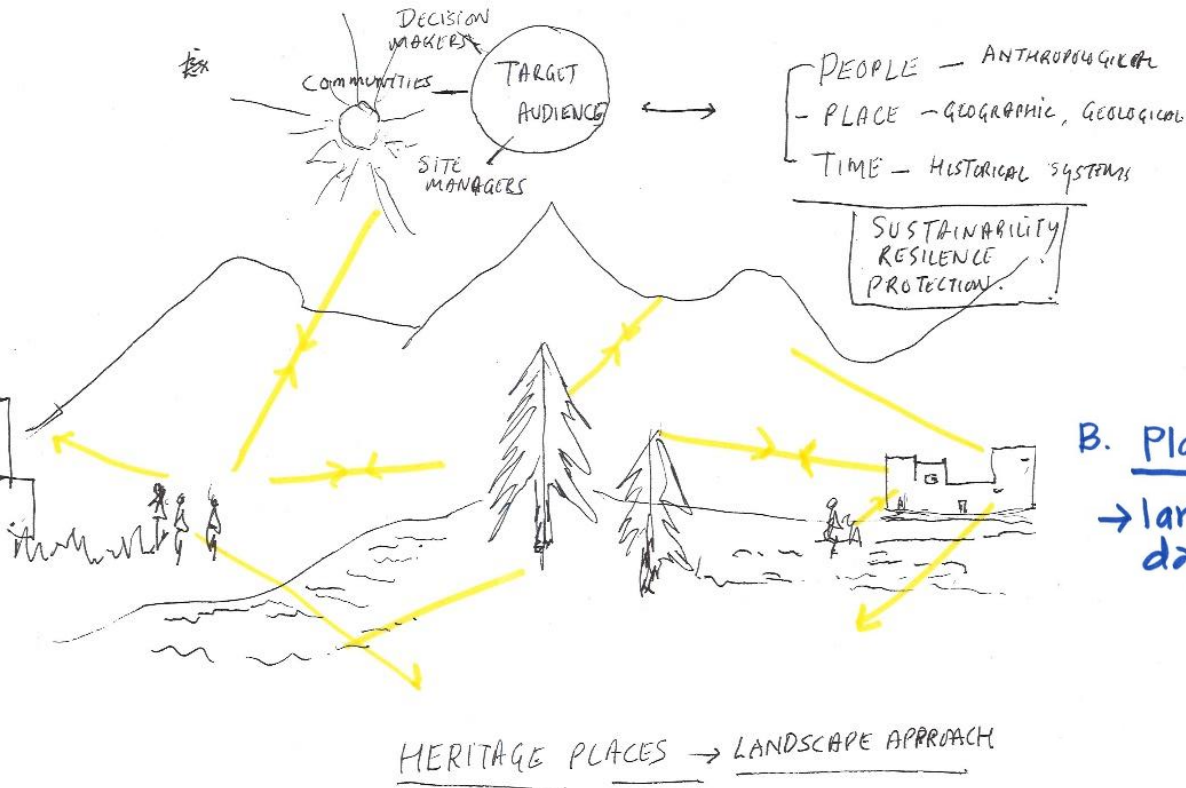 DECISION
MAKERS
COMMUNITIES
TARGET
AUDIENCE
SITE
MANAGERS
PEOPLE — ANTHROPOLOGICAL
- PLACE - GEOGRAPHIC, GEOLOGICAL
TIME — HISTORICAL SYSTEMS
SUSTAINABILITY
RESILENCE
PROTECTION.
B. Pla
→ lan
da
HERITAGE PLACES → LANDSCAPE APPROACH